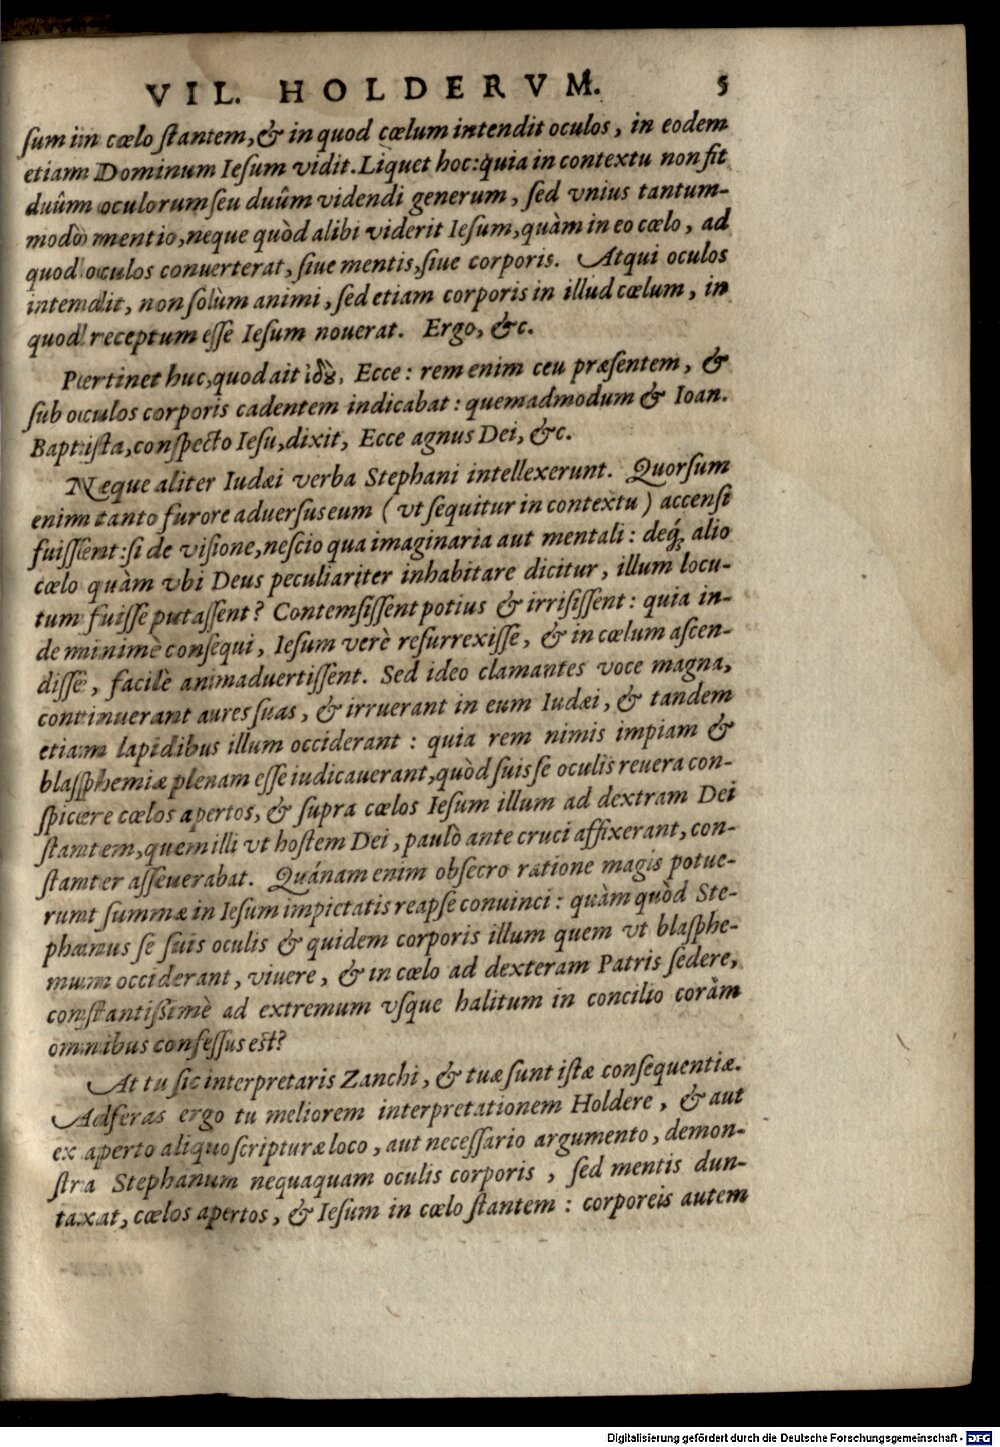 VIL. HOLDERVM. 5
sum in cœlo stantem, & in quod cœlum intendit oculos, in eodem
etiam Dominum Iesum vidit. Liquet hoc: quia in contextu non fit
duûm oculorum seu duûm videndi generum, sed vnius tantum-
modò mentio, neque quòd alibi viderit Iesum, quàm in eo cœlo, ad
quod oculos conuerterat, siue mentis, siue corporis. Atqui oculos
intendit, non solùm animi, sed etiam corporis in illud cœlum, in
quod receptum esse Iesum nouerat. Ergo, &c.
Pertinet huc, quod ait ἰδȣ̀, Ecce: rem enim ceu præsentem, &
sub oculos corporis cadentem indicabat: quemadmodum & Ioan.
Baptista, conspecto Iesu, dixit, Ecce agnus Dei, &c.
Neque aliter Iudæi verba Stephani intellexerunt. Quorsum
enim tanto furore aduersus eum (vt sequitur in contextu) accensi
fuissent: si de visione, nescio qua imaginaria aut mentali: deq́; alio
cœlo quàm vbi Deus peculiariter inhabitare dicitur, illum locu-
tum fuisse putassent? Contemsissent potius & irrisissent: quia in-
de minimè consequi, Iesum verè resurrexisse, & in cœlum ascen-
disse, facilè animaduertissent. Sed ideo clamantes voce magna,
continuerant aures suas, & irruerant in eum Iudæi, & tandem
etiam lapidibus illum occiderant: quia rem nimis impiam &
blasphemiæ plenam esse iudicauerant, quòd suis se oculis reuera con-
spicere cœlos apertos, & supra cœlos Iesum illum ad dextram Dei
stantem, quem illi vt hostem Dei, paulò ante cruci affixerant, con-
stanter asseuerabat. Quánam enim obsecro ratione magis potue-
runt summæ in Iesum impietatis reapse conuinci: quàm quòd Ste-
phanus se suis oculis & quidem corporis illum quem vt blasphe-
mum occiderant, viuere, & in cœlo ad dexteram Patris sedere,
constantissimè ad extremum vsque halitum in concilio coràm
omnibus confessus est?
At tu sic interpretaris Zanchi, & tuæ sunt istæ consequentiæ.
Adferas ergo tu meliorem interpretationem Holdere, & aut
ex aperto aliquo scripturæ loco, aut necessario argumento, demon-
stra Stephanum nequaquam oculis corporis, sed mentis dun-
taxat, cœlos apertos, & Iesum in cœlo stantem: corporeis autem
Digitalisierung gefördert durch die Deutsche Forschungsgemeinschaft - DFG